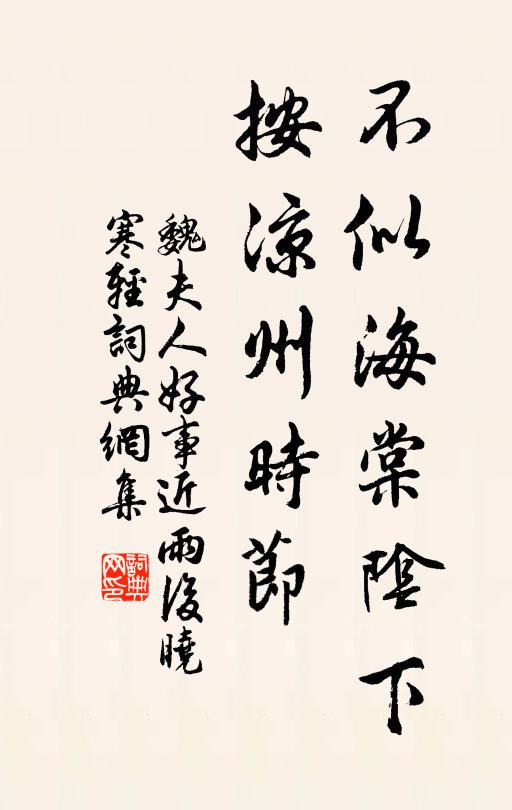 不似海棠陰下
按涼州時節
魏夫人好事近雨後曉
寒輕詞典網集
詞典
网印